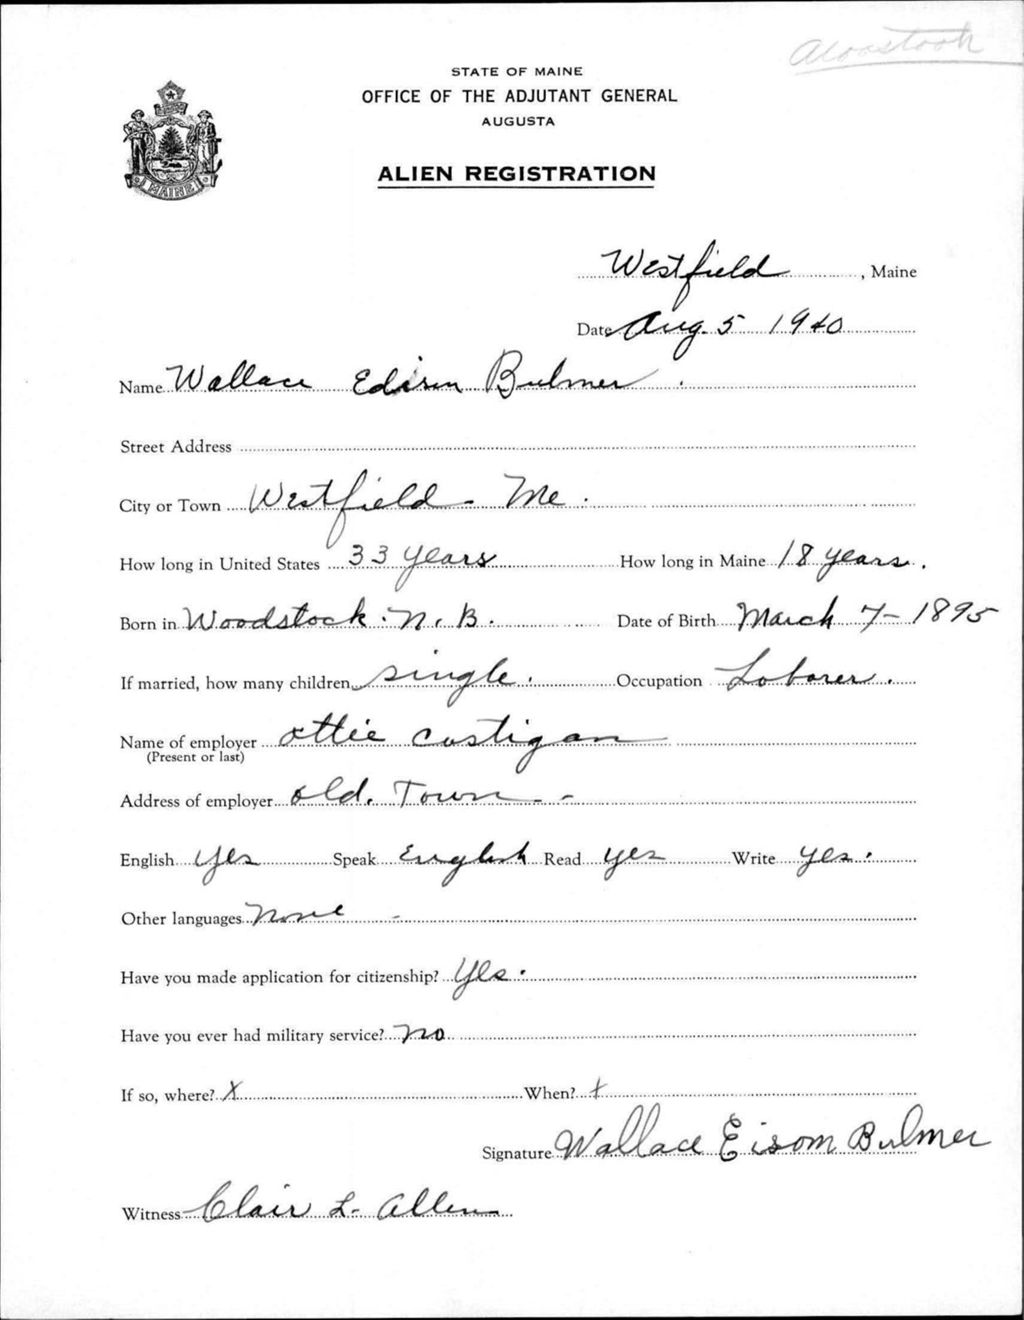 Aroostook
STATE OF MAINE
OFFICE OF THE ADJUTANT GENERAL
AUGUSTA
ALIEN REGISTRATION
MAINE
Westfield, Maine
Date Aug. 5 1940
Name Wallace Edison Bulmer.
Street Address
City or Town Westfield - Me.
How long in United States 33 years How long in Maine 18 years.
Born in Woodstock. N. B. Date of Birth March 7 - 1895
If married, how many children single. Occupation Laborer.
Name of employer Ottie Costigan
(Present or last)
Address of employer Old. Town -
English Yes Speak English Read yes Write yes.
Other languages None -
Have you made application for citizenship? Yes.
Have you ever had military service? No
If so, where? X When? X
Signature Wallace Eisom Bulmer
Witness Clair L. Allen